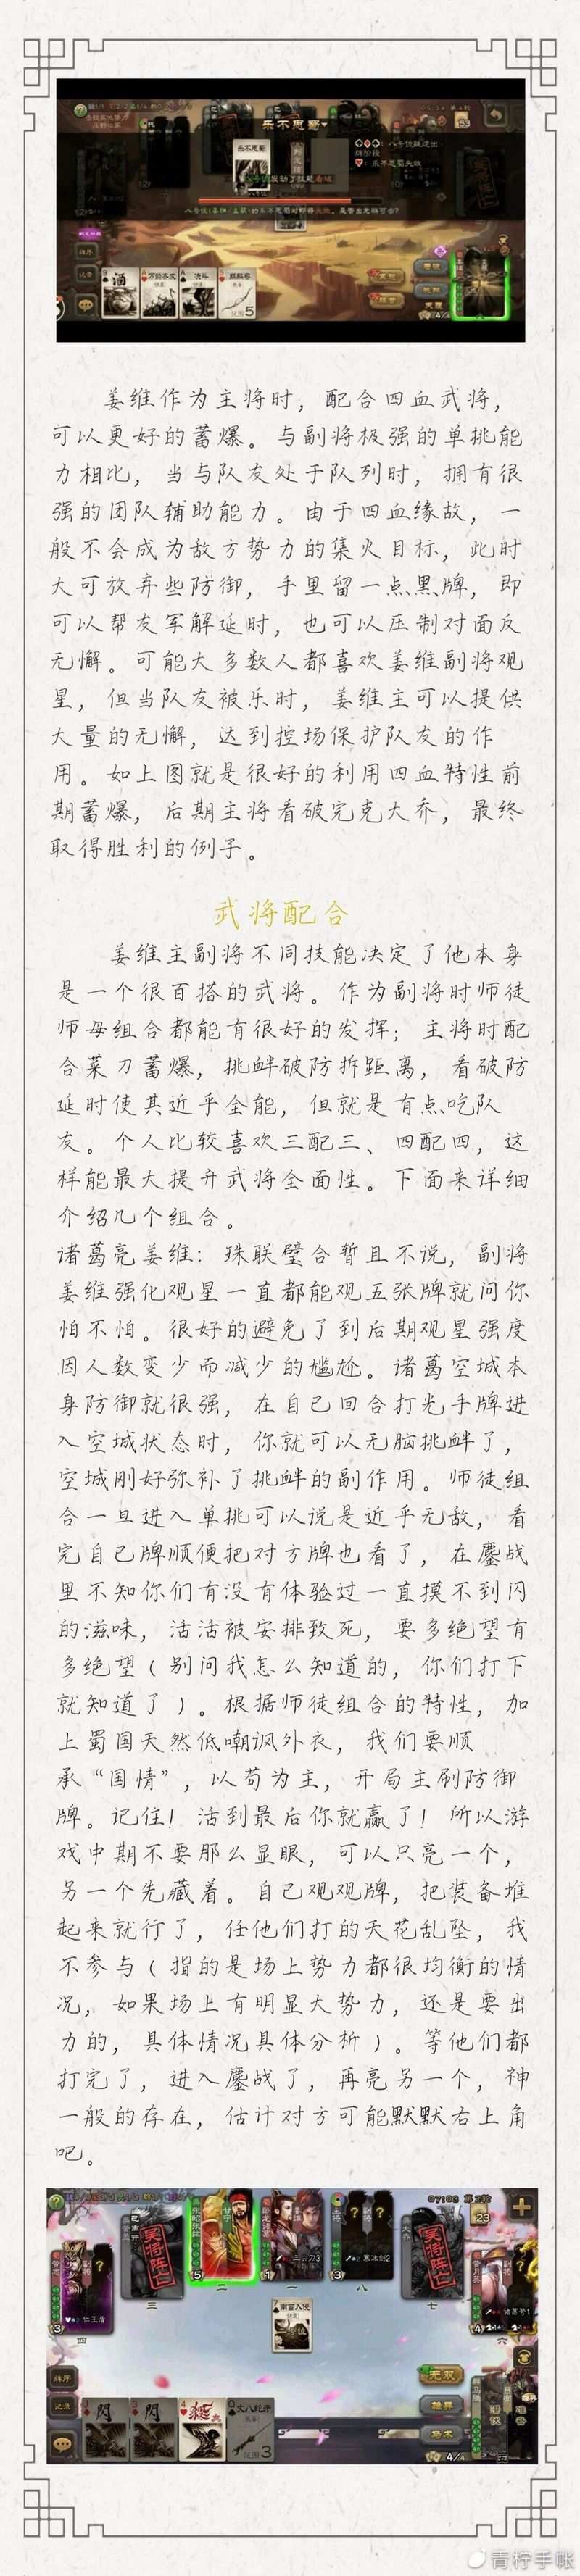 乐不思蜀
乐不思蜀
酒
决斗
麒麟弓
5
牌序
记录
姜维作为主将时，配合四血武将，
可以更好的蓄爆。与副将极强的单挑能
力相比，当与队友处于队列时，拥有很
强的团队辅助能力。由于四血缘故，一
般不会成为敌方势力的集火目标，此时
大可放弃些防御，手里留一点黑牌，即
可以帮友军解延时，也可以压制对面反
无懈。可能大多数人都喜欢姜维副将观
星，但当队友被乐时，姜维主可以提供
大量的无懈，达到控场保护队友的作
用。如上图就是很好的利用四血特性前
期蓄爆，后期主将看破完克大乔，最终
取得胜利的例子。
武将配合
姜维主副将不同技能决定了他本身
是一个很百搭的武将。作为副将时师徒
师母组合都能有很好的发挥；主将时配
合菜刀蓄爆，挑衅破防拆距离，看破防
延时使其近乎全能，但就是有点吃队
友。个人比较喜欢三配三、四配四，这
样能最大提升武将全面性。下面来详细
介绍几个组合。
诸葛亮姜维：珠联璧合暂且不说，副将
姜维强化观星一直都能观五张牌就问你
怕不怕。很好的避免了到后期观星强度
因人数变少而减少的尴尬。诸葛空城本
身防御就很强，在自己回合打光手牌进
入空城状态时，你就可以无脑挑衅了，
空城刚好弥补了挑衅的副作用。师徒组
合一旦进入单挑可以说是近乎无敌，看
完自己牌顺便把对方牌也看了，在鏖战
里不知你们有没有体验过一直摸不到闪
的滋味，活活被安排致死，要多绝望有
多绝望（别问我怎么知道的，你们打下
就知道了）。根据师徒组合的特性，加
上蜀国天然低嘲讽外衣，我们要顺
承“国情”，以苟为主，开局主刷防御
牌。记住！活到最后你就赢了！所以游
戏中期不要那么显眼，可以只亮一个，
另一个先藏着。自己观观牌，把装备堆
起来就行了，任他们打的天花乱坠，我
不参与（指的是场上势力都很均衡的情
况，如果场上有明显大势力，还是要出
力的，具体情况具体分析）。等他们都
打完了，进入鏖战了，再亮另一个，神
一般的存在，估计对方可能默默右上角
吧。
07:03 第2轮
23
吴将阵亡
吴将阵亡
大乔
甘宁
仁王盾
寒冰剑2
诸葛弩1
三
二
一
八
七
四
六
南蛮入侵
二号位
无双
牌序
记录
闪
闪
杀
丈八蛇矛
范围3
马术
4/4
青柠手帐